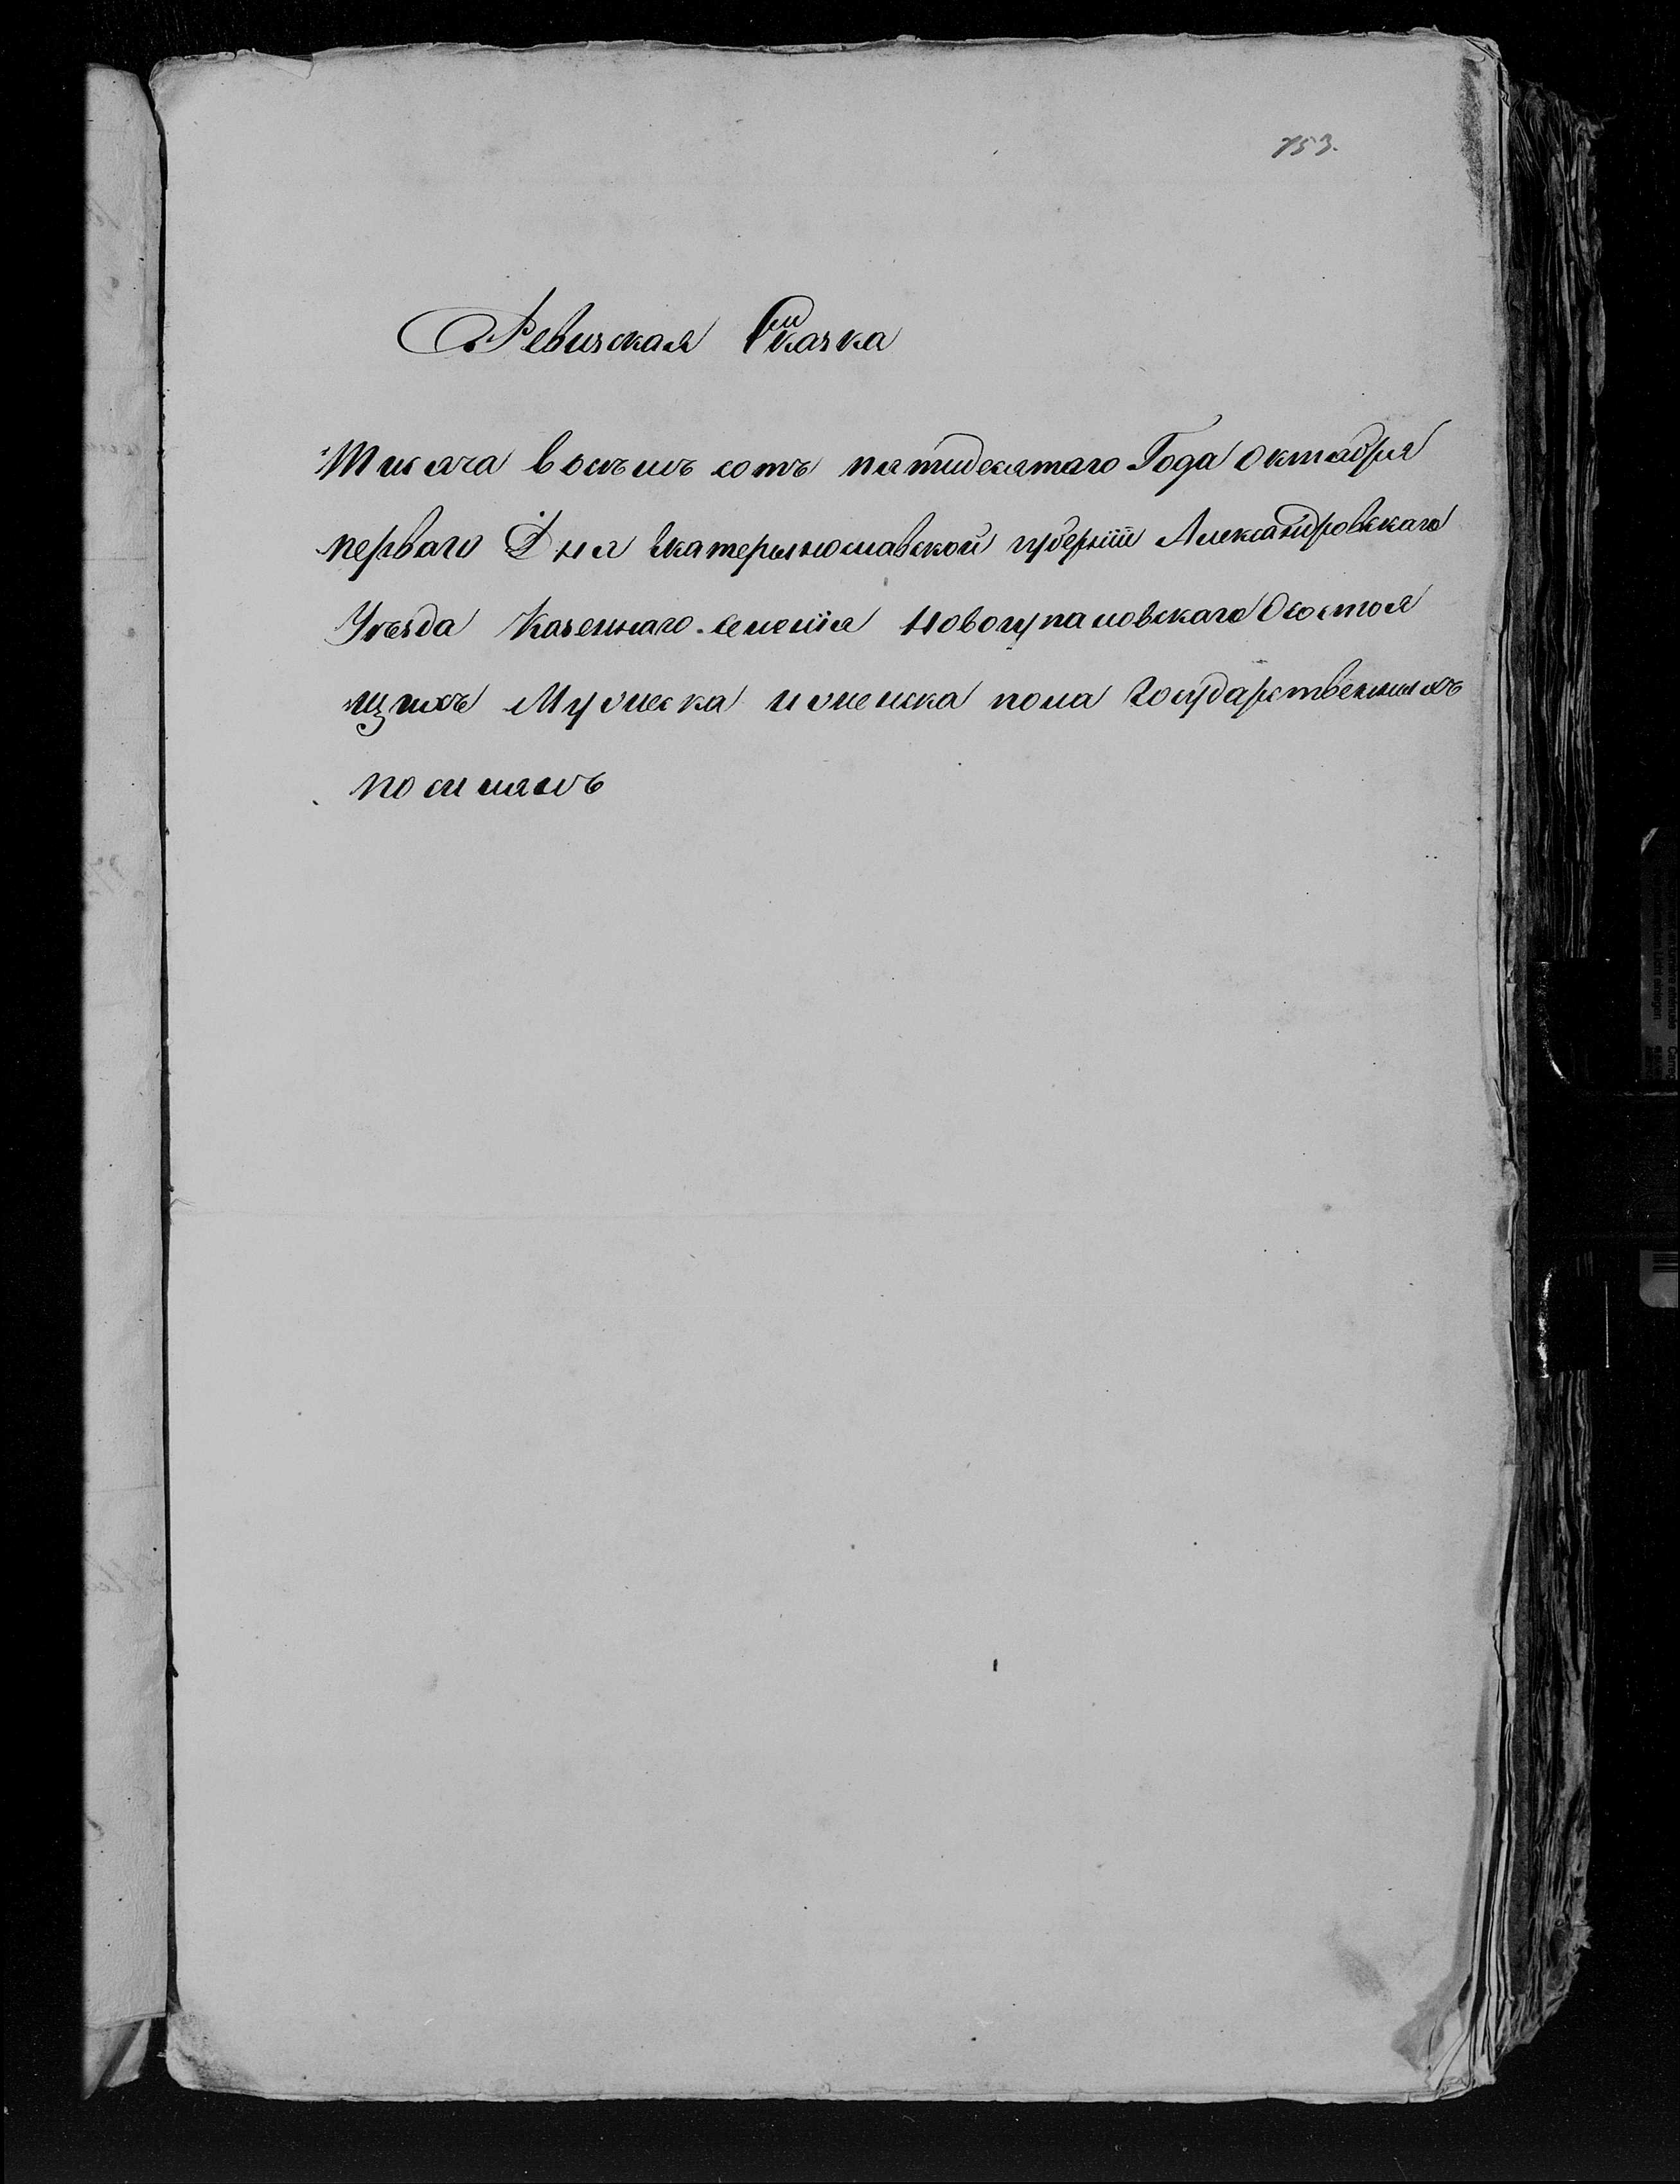 753.
Ревизская Сказка
Тисяча восъмъ сотъ пятидесятаго Года Октабря
перваго Дня Екатерынославской губерніи Александровскаго
Уезда Казеннаго селенія Новогупаловскаго О состоя
щихъ Мужеска и женска пола государственныхъ